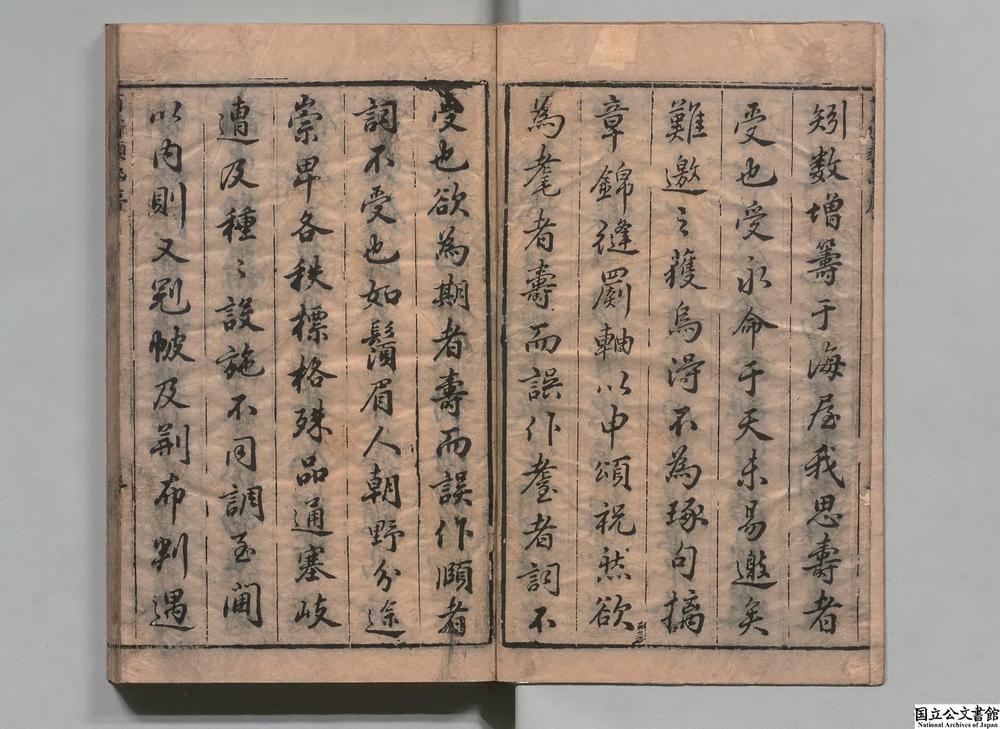 矧数增籌于海屋我思壽者
受也受永命于天未易邀矣
難邀之獲烏得不為琢句摛
章錦縫罽軸以申頌祝然欲
為耄者壽而誤作耋者詞不
受也欲為期者壽而誤作頤者
詞不受也如鬚眉人朝野分途
崇卑各秩標格殊品通塞岐
遭及種〻設施不同調至閫
以内則又冠帔及荆布判遇
国立公文書館
National Archives of Japan